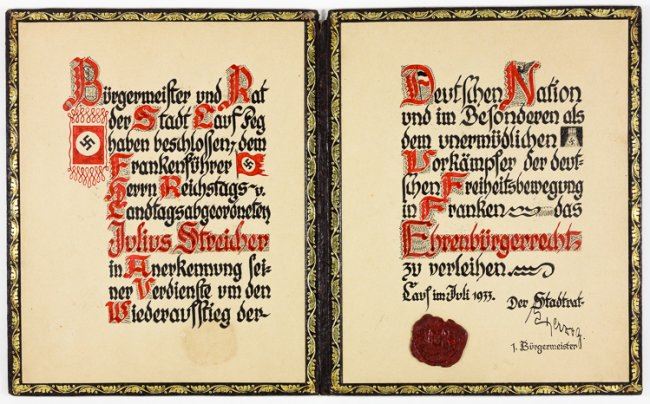 Bürgermeister und Rat
der Stadt Lauf Peg
haben beschlossen, dem
Frankenführer
Herrn Reichstags- u.
Landtagsabgeordneten
Julius Streicher
in Anerkennung sei-
ner Verdienste um den
Wiederaufstieg der
Deutschen Nation
und im Besonderen als
dem unermüdlichen
Vorkämpfer der deut-
schen Freiheitsbewegung
in Franken das
Ehrenbürgerrecht
zu verleihen.
Lauf im Juli 1933.
Der Stadtrat
1. Bürgermeister